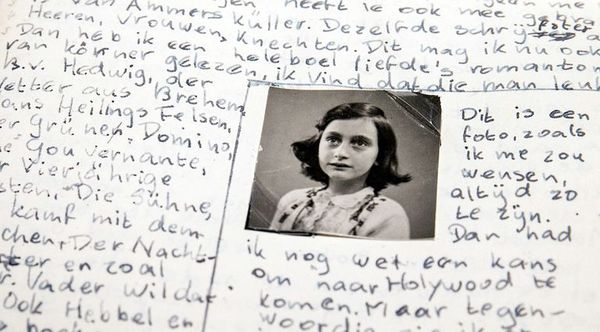 heeft ie ook mee
is van Ammers Küller. Dezelfde schrij
Heeren, Vrouwen, Knechten. Dit mag ik nu ook
Dan heb ik een heleboel liefde's roman
van Körner gelezen, ik vind dat die man leu
B.v. Hedwig, der
Vetter aus Brehem,
ans Heilings Felsen,
er Grüner Domino,
e Gouvernante,
r Vierjährige
sten, Die Sühne,
Kamf mit dem
chen, Der Nacht-
ter en zoal
r. Vader wil dat
ook Hebbel en
Dit is een
foto, zoals
ik me zou
wensen,
altijd zo
te zijn.
Dan had
ik nog wet een kans
om naar Holywood te
komen. Maar tegen-
woordig